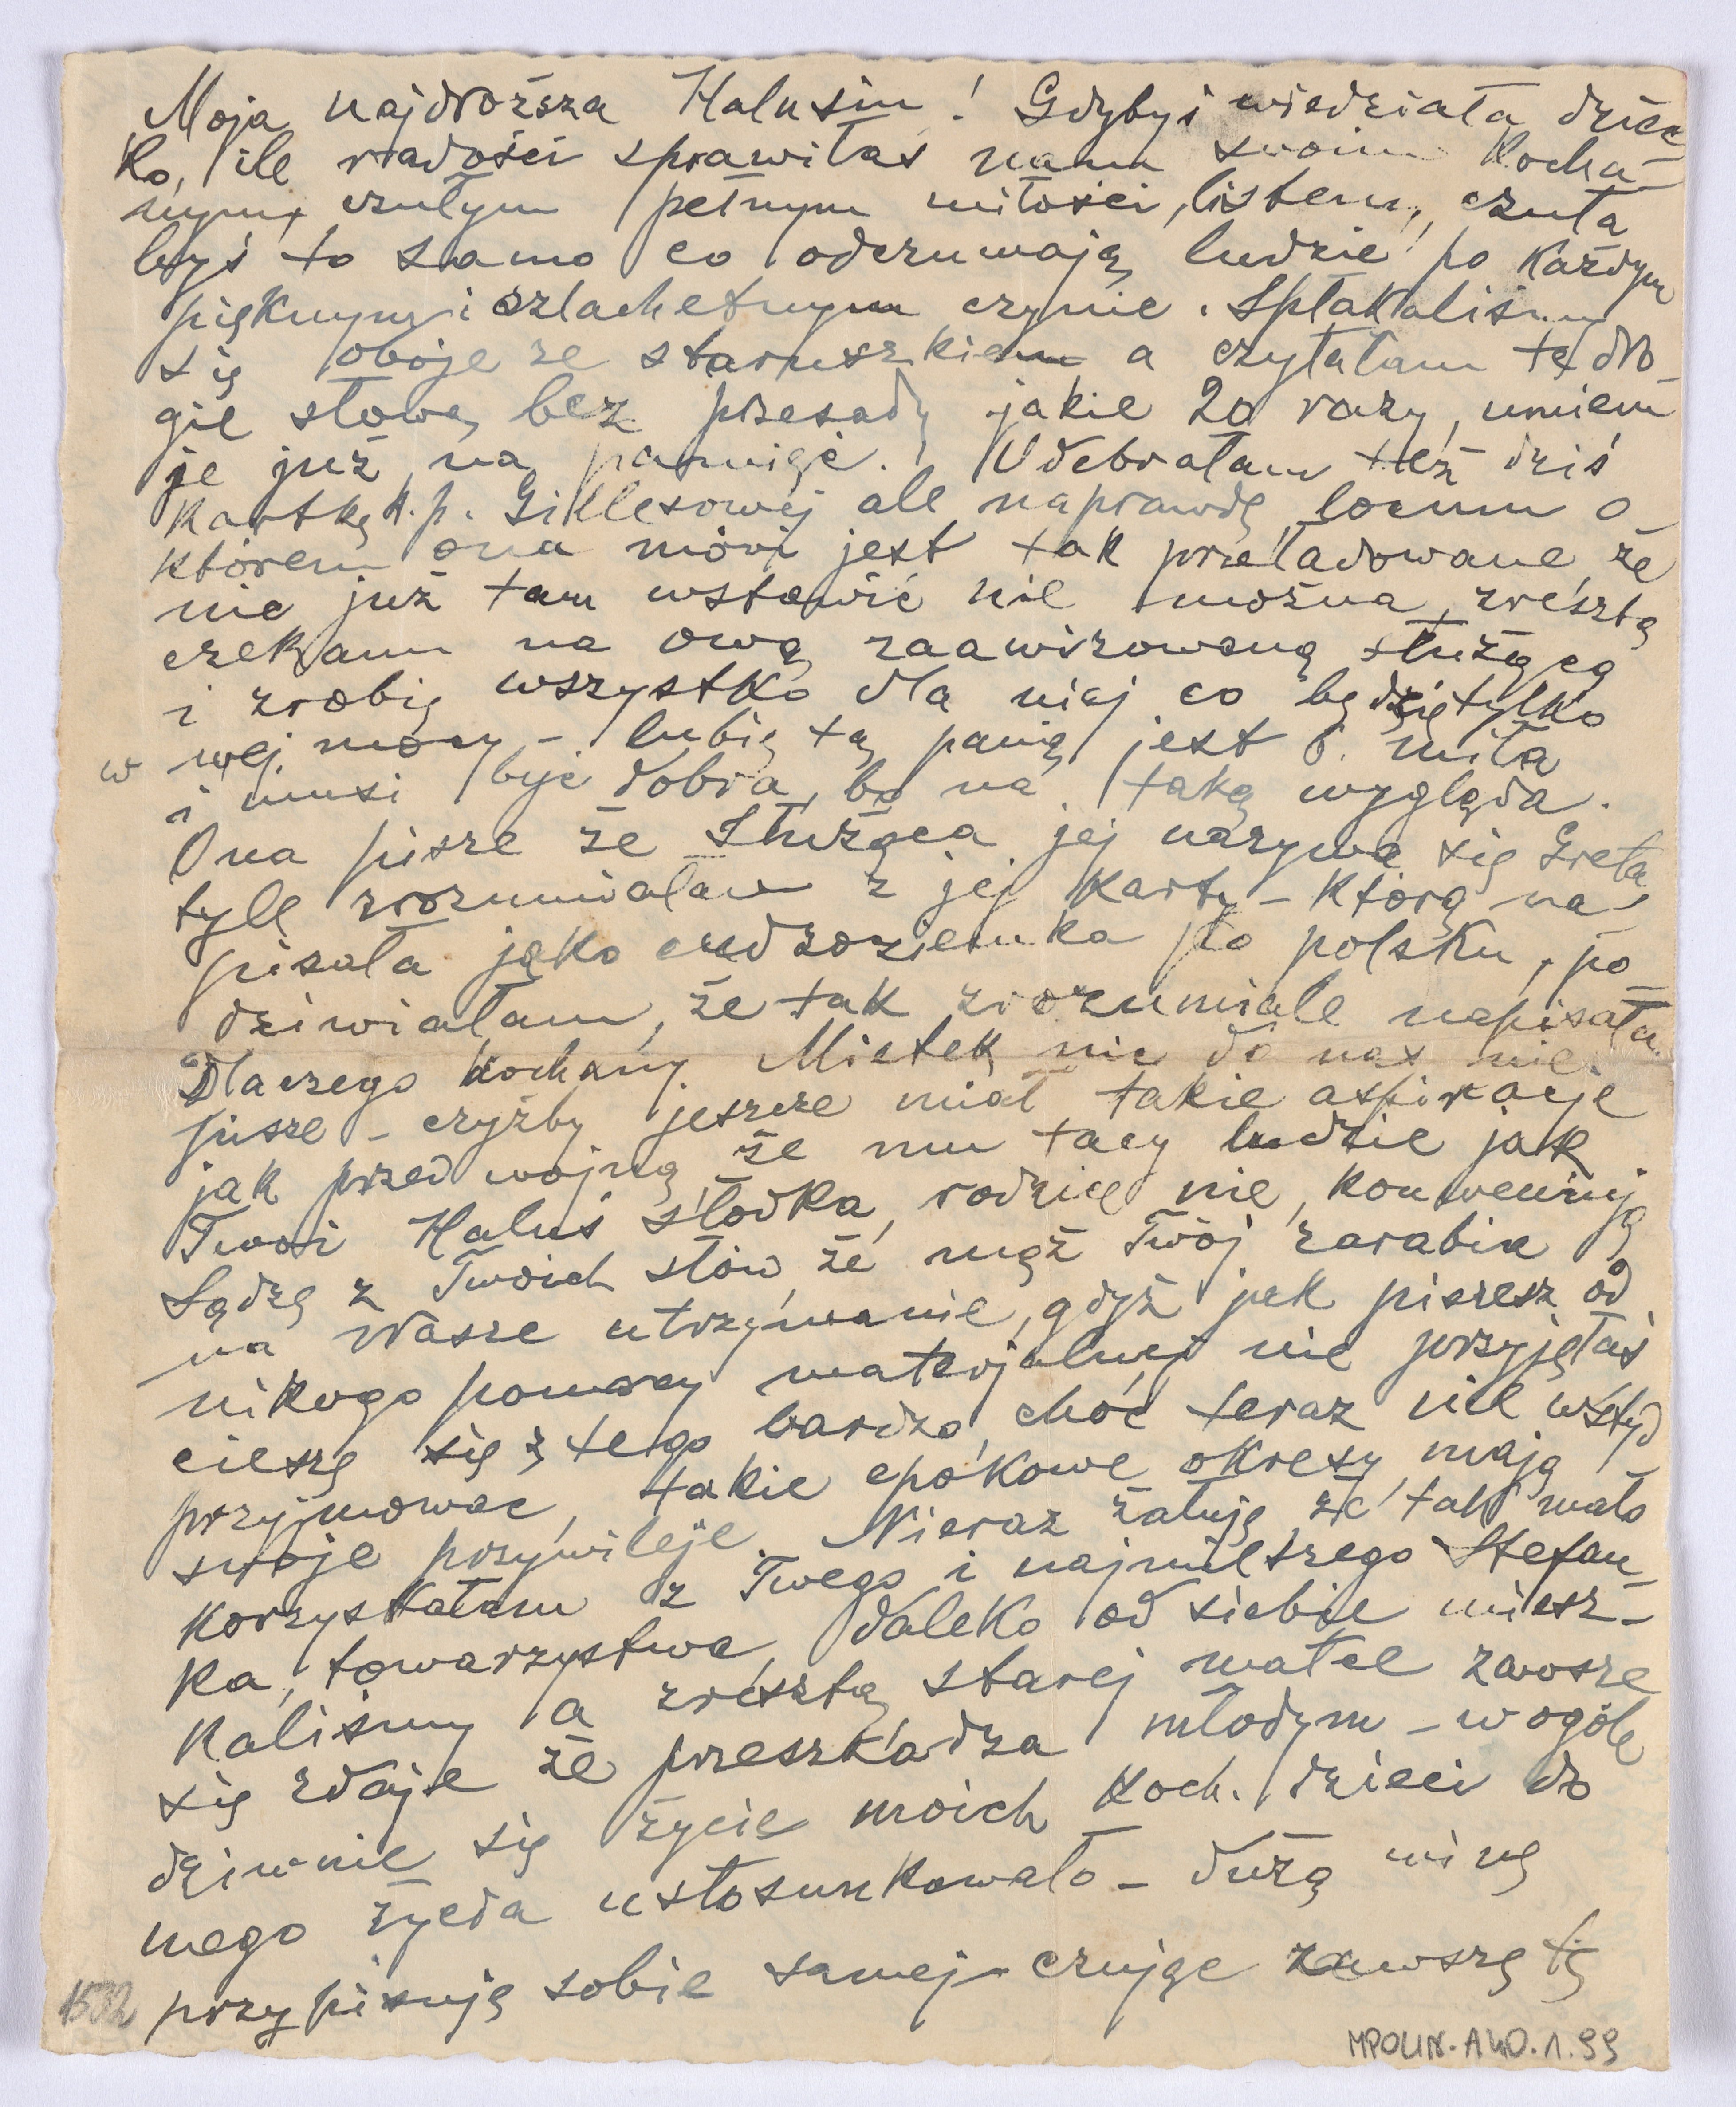 Moja najdroższa Halusiu! Gdybyś wiedziała dziec
ko, ile radości sprawiłaś nam swoim kocha-
nym, czułym pełnym miłości, listem, czuła
byś to samo co odczuwają ludzie po każdym
pięknym i szlachetnym czynie. Spłakaliśmy
się oboje ze staruszkiem a czytałam te dro-
gie słowa, bez przesady jakie 20 razy, umiem
je już na pamięć. Odebrałam też dziś
kartkę k. p. Gillesowej ale naprawdę locum o
którem ona mówi jest tak przeładowane, że
nic już tam wstawić nie można, zresztą
czekam na ową zaawizowaną służącą
i zrobię wszystko dla niej co będzie tylko
w mej mocy - lubię tą panią jest b. miła
i musi być dobra, bo na taką wygląda.
Ona pisze że służąca jej nazywa się Greta
tyle zrozumiałam z jej karty - którą na-
pisała jako cudzoziemka po polsku, po-
dziwiałam, że tak zrozumiale napisała.
Dlaczego kochany Mietek nic do nas nie
pisze - czyżby jeszcze miał takie aspiracje
jak przed wojną, że mu tacy ludzie jak
Twoi Haluś słodka, rodzice nie konweniują
Sądzę z Twoich słów, że mąż Twój zarabia
na Wasze utrzymanie, gdyż jak piszesz od
nikogo pomocy materjalnej nie przyjęłaś
cieszę się z tego bardzo, choć teraz nie wstyd
przyjmować, takie epokowe okresy mają
swoje przywileje. Nieraz żałuję że tak mało
korzystałam z Twego i najmilszego Stefan-
ka, towarzystwa, daleko od siebie miesz-
kaliśmy a zresztą starej matce zawsze
się zdaje że przeszkadza młodym - wogóle
dziwnie się życie moich koch. dzieci do
mego życia ustosunkowało - dużą winę
przypisuję sobie samej - czując zawsze tę
1532
MPOLIN-A40.1.99